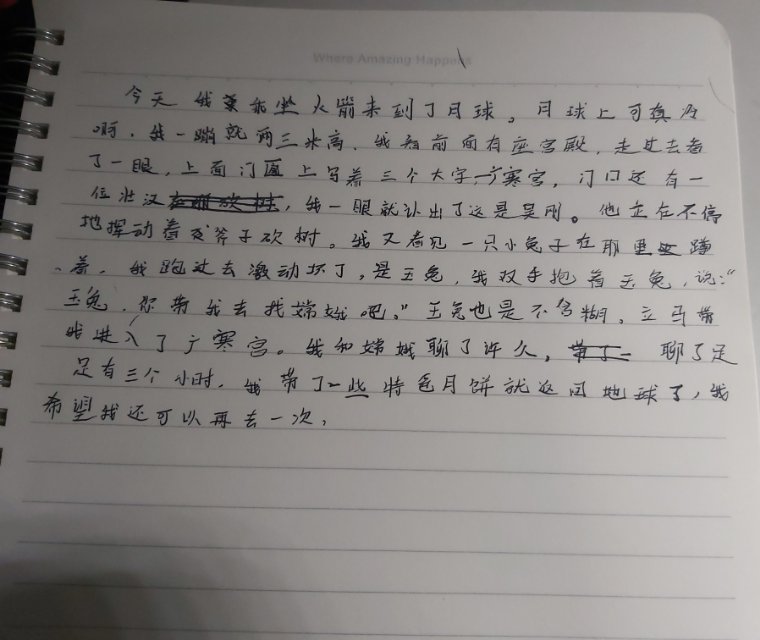 Where Amazing Happens
今天我乘坐火箭来到了月球。月球上可真为
啊,我一蹦就两三米高,我看前面有座宫殿,走过去看
了一眼,上面门匾上写着三个大字,广寒宫,门口还有一
位壮汉在那砍树,我一眼就认出了这是吴刚。他正在不停
地挥动着斧子砍树。我又看见一只小兔子在那里蹲
着,我跑过去激动坏了,是玉兔,我双手抱着玉兔,说:“
玉兔,你带我去找嫦娥吧。”玉兔也是不含糊,立马带
我进入了广寒宫。我和嫦娥聊了许久,带了一聊了足
足有三个小时,我带了一些特色月饼就返回地球了,我
希望我还可以再去一次,